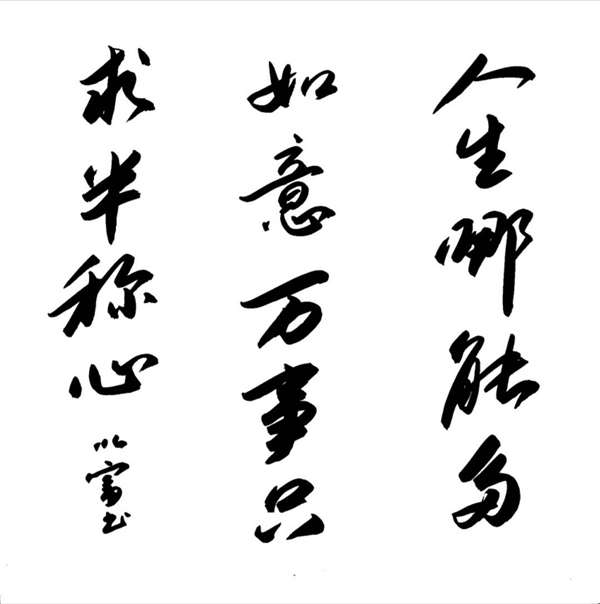 人生哪能多
如意万事只
求半称心
书